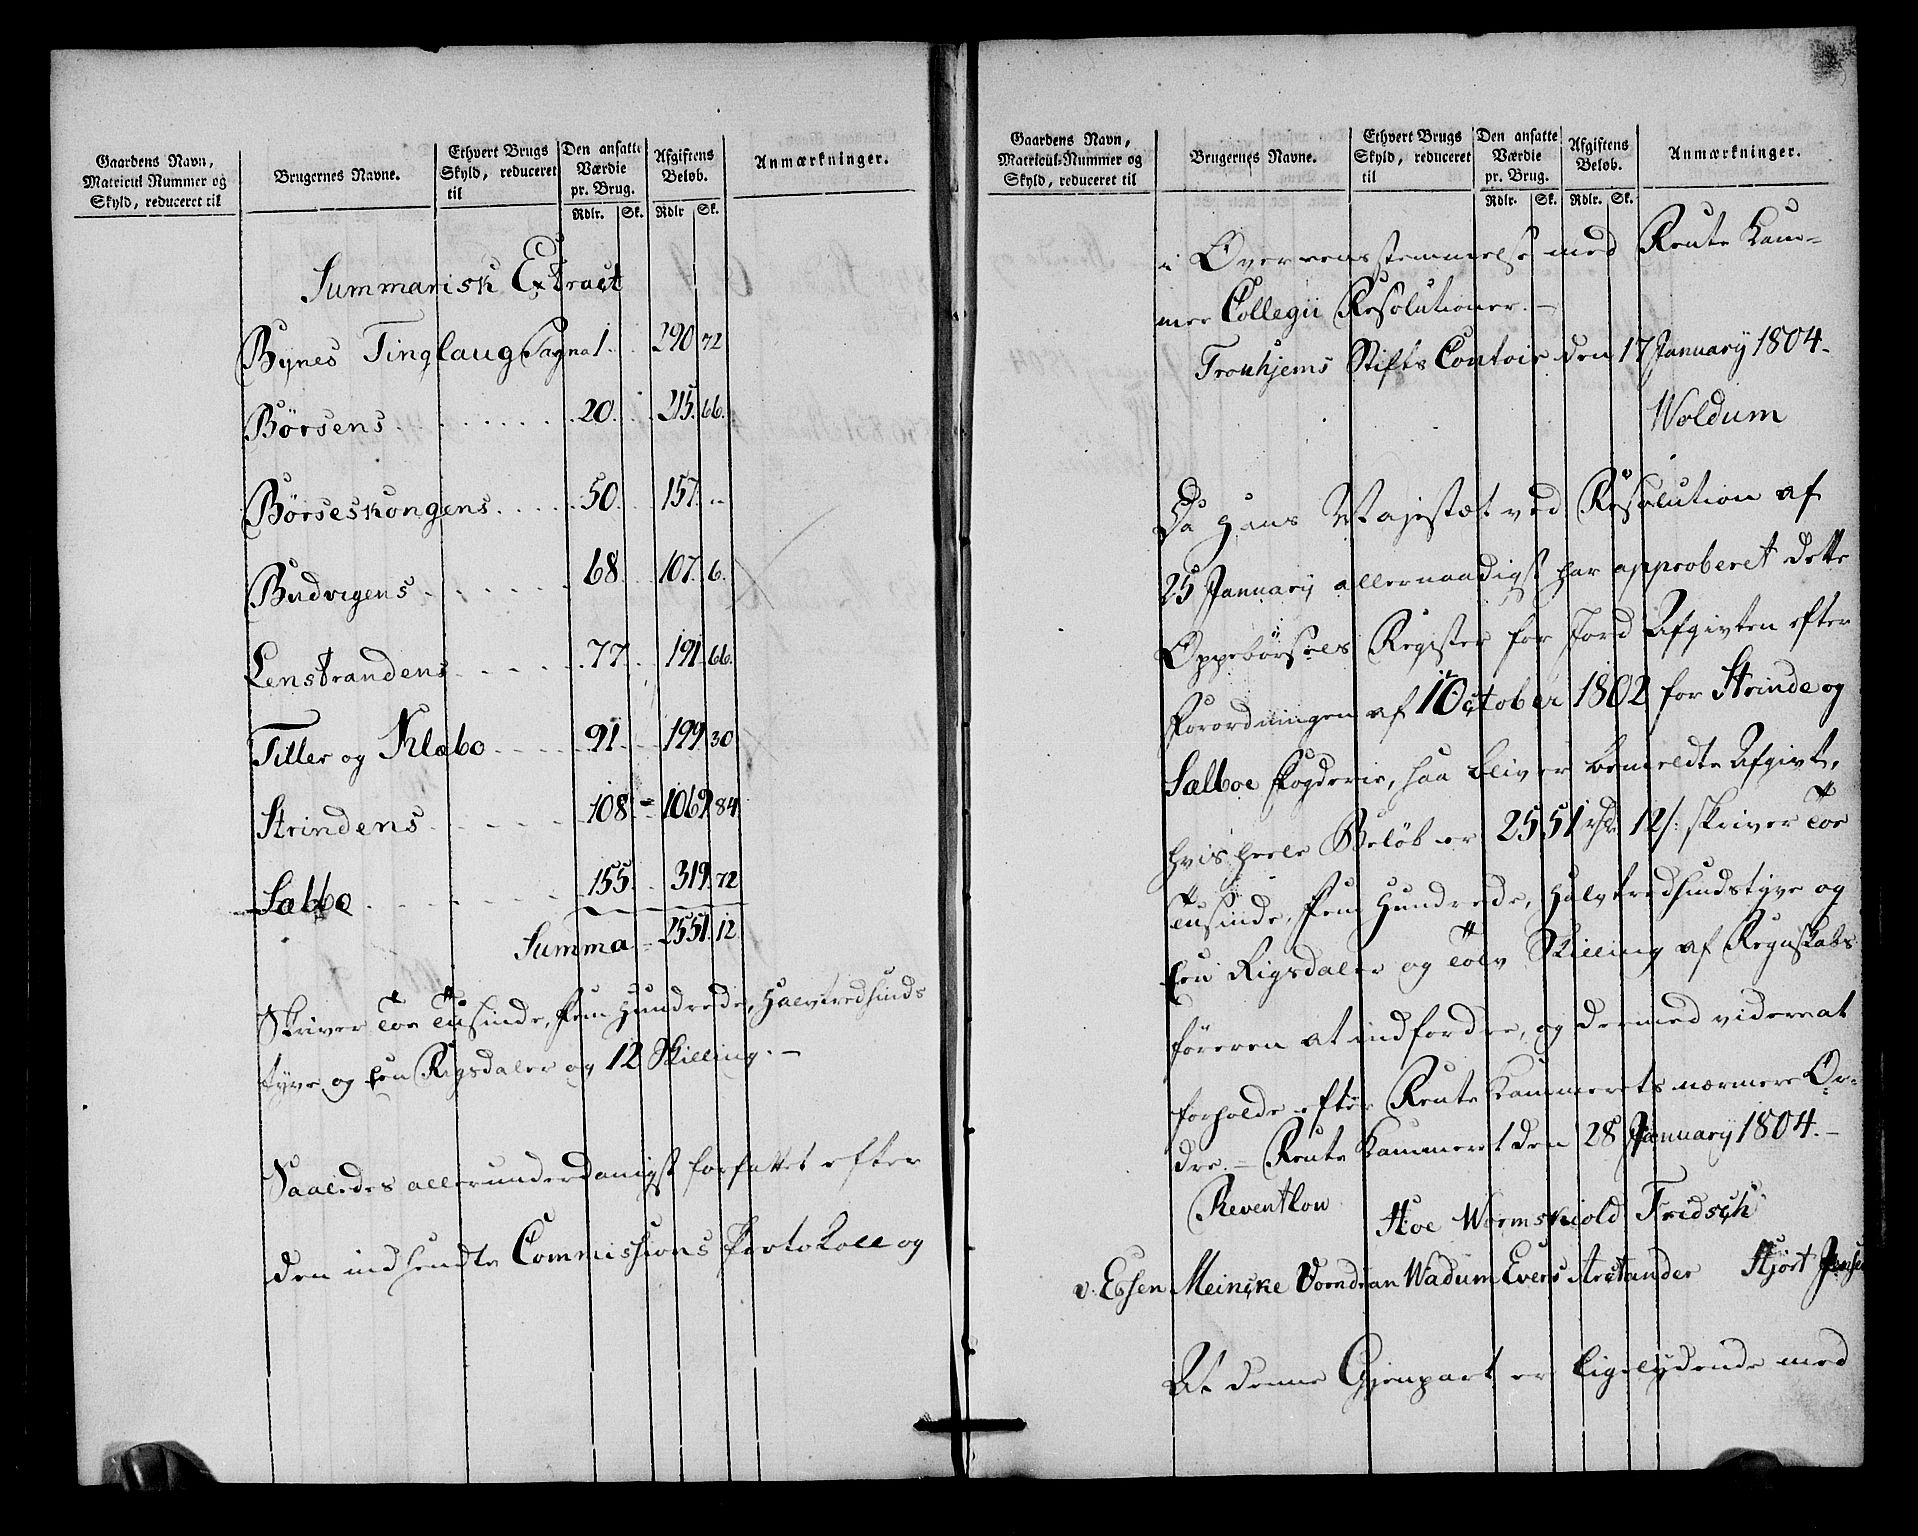 Gaardens Navn,
Matricul Nummer og
Skyld, reduceret til
Brugernes Navne.
Ethvert Brugs
Skyld, reduceret
til
Den ansatte
Værdie
pr. Brug.
Rdlr. Sk.
Afgiftens
Beløb.
Rdlr Sk.
Anmærkninger.
Summarisk Extract
Bynes Tinglaug Pagna 1. 290 72
Børsens 20. 215. 66.
Børseskongens 50. 157. "
Budvigens 68. 107. 6.
Lenstrandens 77 191. 66.
Tiller og Klæbo 91. 199. 30
Strindens 108. = 1069 84
Sælbo 155. 319. 72
Summa = 2551. 12.
Skriver Toe Tusinde, Fem Hundrede, Halvtredsinds
tyve og Een Rigsdaler og 12 Skilling. —
Saaledes allerunderdanigst forfattet efter
den indsendte Commissions Protokoll og
Gaardens Navn,
Matricul-Nummer og
Skyld, reduceret til
Brugernes Navne.
Ethvert Brugs
Skyld, reduceret
til
Den ansatte
Værdie
pr. Brug.
Rdlr. Sk.
Afgiftens
Beløb.
Rdlr. Sk.
Anmærkninger.
i Overeensstemmelse med Rente Kam-
mer Collegii Resolutioner. —
Tronhjems Stifts Contoir den 17 January 1804.
Woldum
Da Hans Majestæt ved Resolution af
25 January allernaadigst har approberet dette
Oppebørsels Register for Jord Afgivten efter
Forordningen af 1 October 1802 for Strinde og
Sælboe Fogderie, saa bliver bemeldte Afgivt,
hvis heele Beløb er 2551 rdr. 12 s: skriver Toe
Tusinde, Fem Hundrede, Halvtredsindstyve og
Een Rigsdaler og Tolv Skilling af Regnskabs
føreren at indfordre, og dermed videre at
forholde efter Rente Kammerets nærmere Or-
dre. — Rente Kammeret den 28 January 1804. —
Reventlou Hoe Wormskiold Fridsch
v. Essen Meincke Vorndran Wadum Evers Arctander Hjort Jensen
At denne Gjenpart er ligelydende med